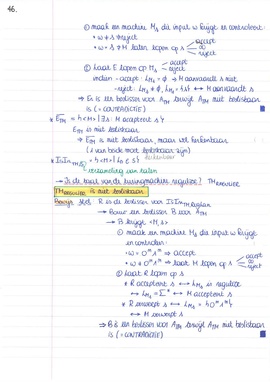 46.
① maak een machine Ms die input w krijgt en controleert:
• w ≠ s reject
• w = s → M laten lopen op s < accept ∞ reject
② laat E lopen op Ms < accept reject
indien - accept: L_Ms = ∅ → M aanvaardt s niet
- reject: L_Ms ≠ ∅, L_Ms ↔ M aanvaardt s
→ Er is een beslisser voor A_TM terwijl A_TM niet beslisbaar
is (= CONTRADICTIE)
* E_TM = { <M> | ∃s: M accepteert s }
E_TM is niet beslisbaar
→ E_TM is niet beslisbaar, maar wel herkenbaar
* IsIn_TM,S = { <M> | L_M ∈ S }
verzameling van talen
→ Is de taal van de turingmachine regulier? TM_REGULIER
TM_REGULIER is niet beslisbaar
Bewijs Stel R is de beslisser voor IsIn_TM,Reglan
→ Bouw een beslisser B voor A_TM
→ B krijgt <M,s>
① maak een machine Ms die input w krijgt
en controleert:
• w = 0ⁿ1ⁿ ⇒ accept
• w ≠ 0ⁿ1ⁿ ⇒ laat M lopen op s < accept ∞ reject
② laat R lopen op s
* R accepteert s ↔ L_Ms is regulier
↔ L_Ms = Σ* ↔ M accepteert s
* R verwerpt s ↔ L_Ms = {0ⁿ1ⁿ}
↔ M verwerpt s
⇒ B is een beslisser voor A_TM terwijl A_TM niet beslisbaar
is (= CONTRADICTIE)